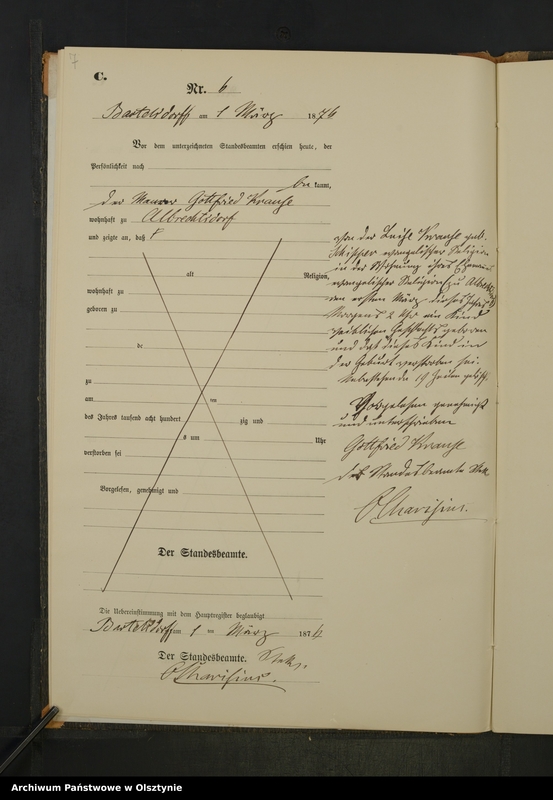 7
C.
Nr. 6
Bartelsdorff am 1 März 1876
Vor dem unterzeichneten Standesbeamten erschien heute, der
Persönlichkeit nach
be kannt,
der Maurer Gottfried Krause
wohnhaft zu Albrechtsdorf
und zeigte an, daß
von der Luise Krause geb.
evangelischer Religion
in der Wohnung ihres Ehemannes
evangelischer Religion zu Albrechtsdorf
am ersten März dieses Jahres
Morgens 2 Uhr ein Kind
weiblichen Geschlechts geboren
und daß dieses Kind in
der Geburt verstorben sei.
Vorstehende 19 Zeilen gelöscht.
Vorgelesen genehmigt
und unterschrieben
Gottfried Krause
der Standesbeamte
alt Religion,
wohnhaft zu
geboren zu
de
zu
am ten
des Jahres tausend acht hundert zig und
s um Uhr
verstorben sei
Vorgelesen, genehmigt und
Der Standesbeamte.
Die Uebereinstimmung mit dem Hauptregister beglaubigt
Bartelsdorff am 1 ten März 1876
Der Standesbeamte.
Archiwum Państwowe w Olsztynie